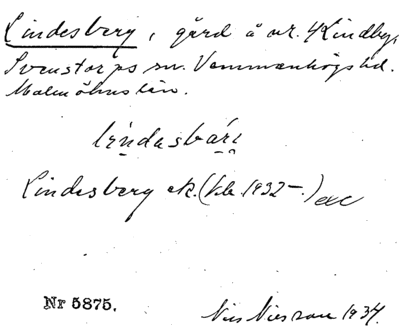 Lindesberg, gård å nr. 4 Lindby,
Svenstorps sn. Vemmenhögs hd.
Malmöhus län.
lindasbárı
Lindesberg ek. (kbr. 1932–.)
Nr 5875.
Nils Nilsson 1934.